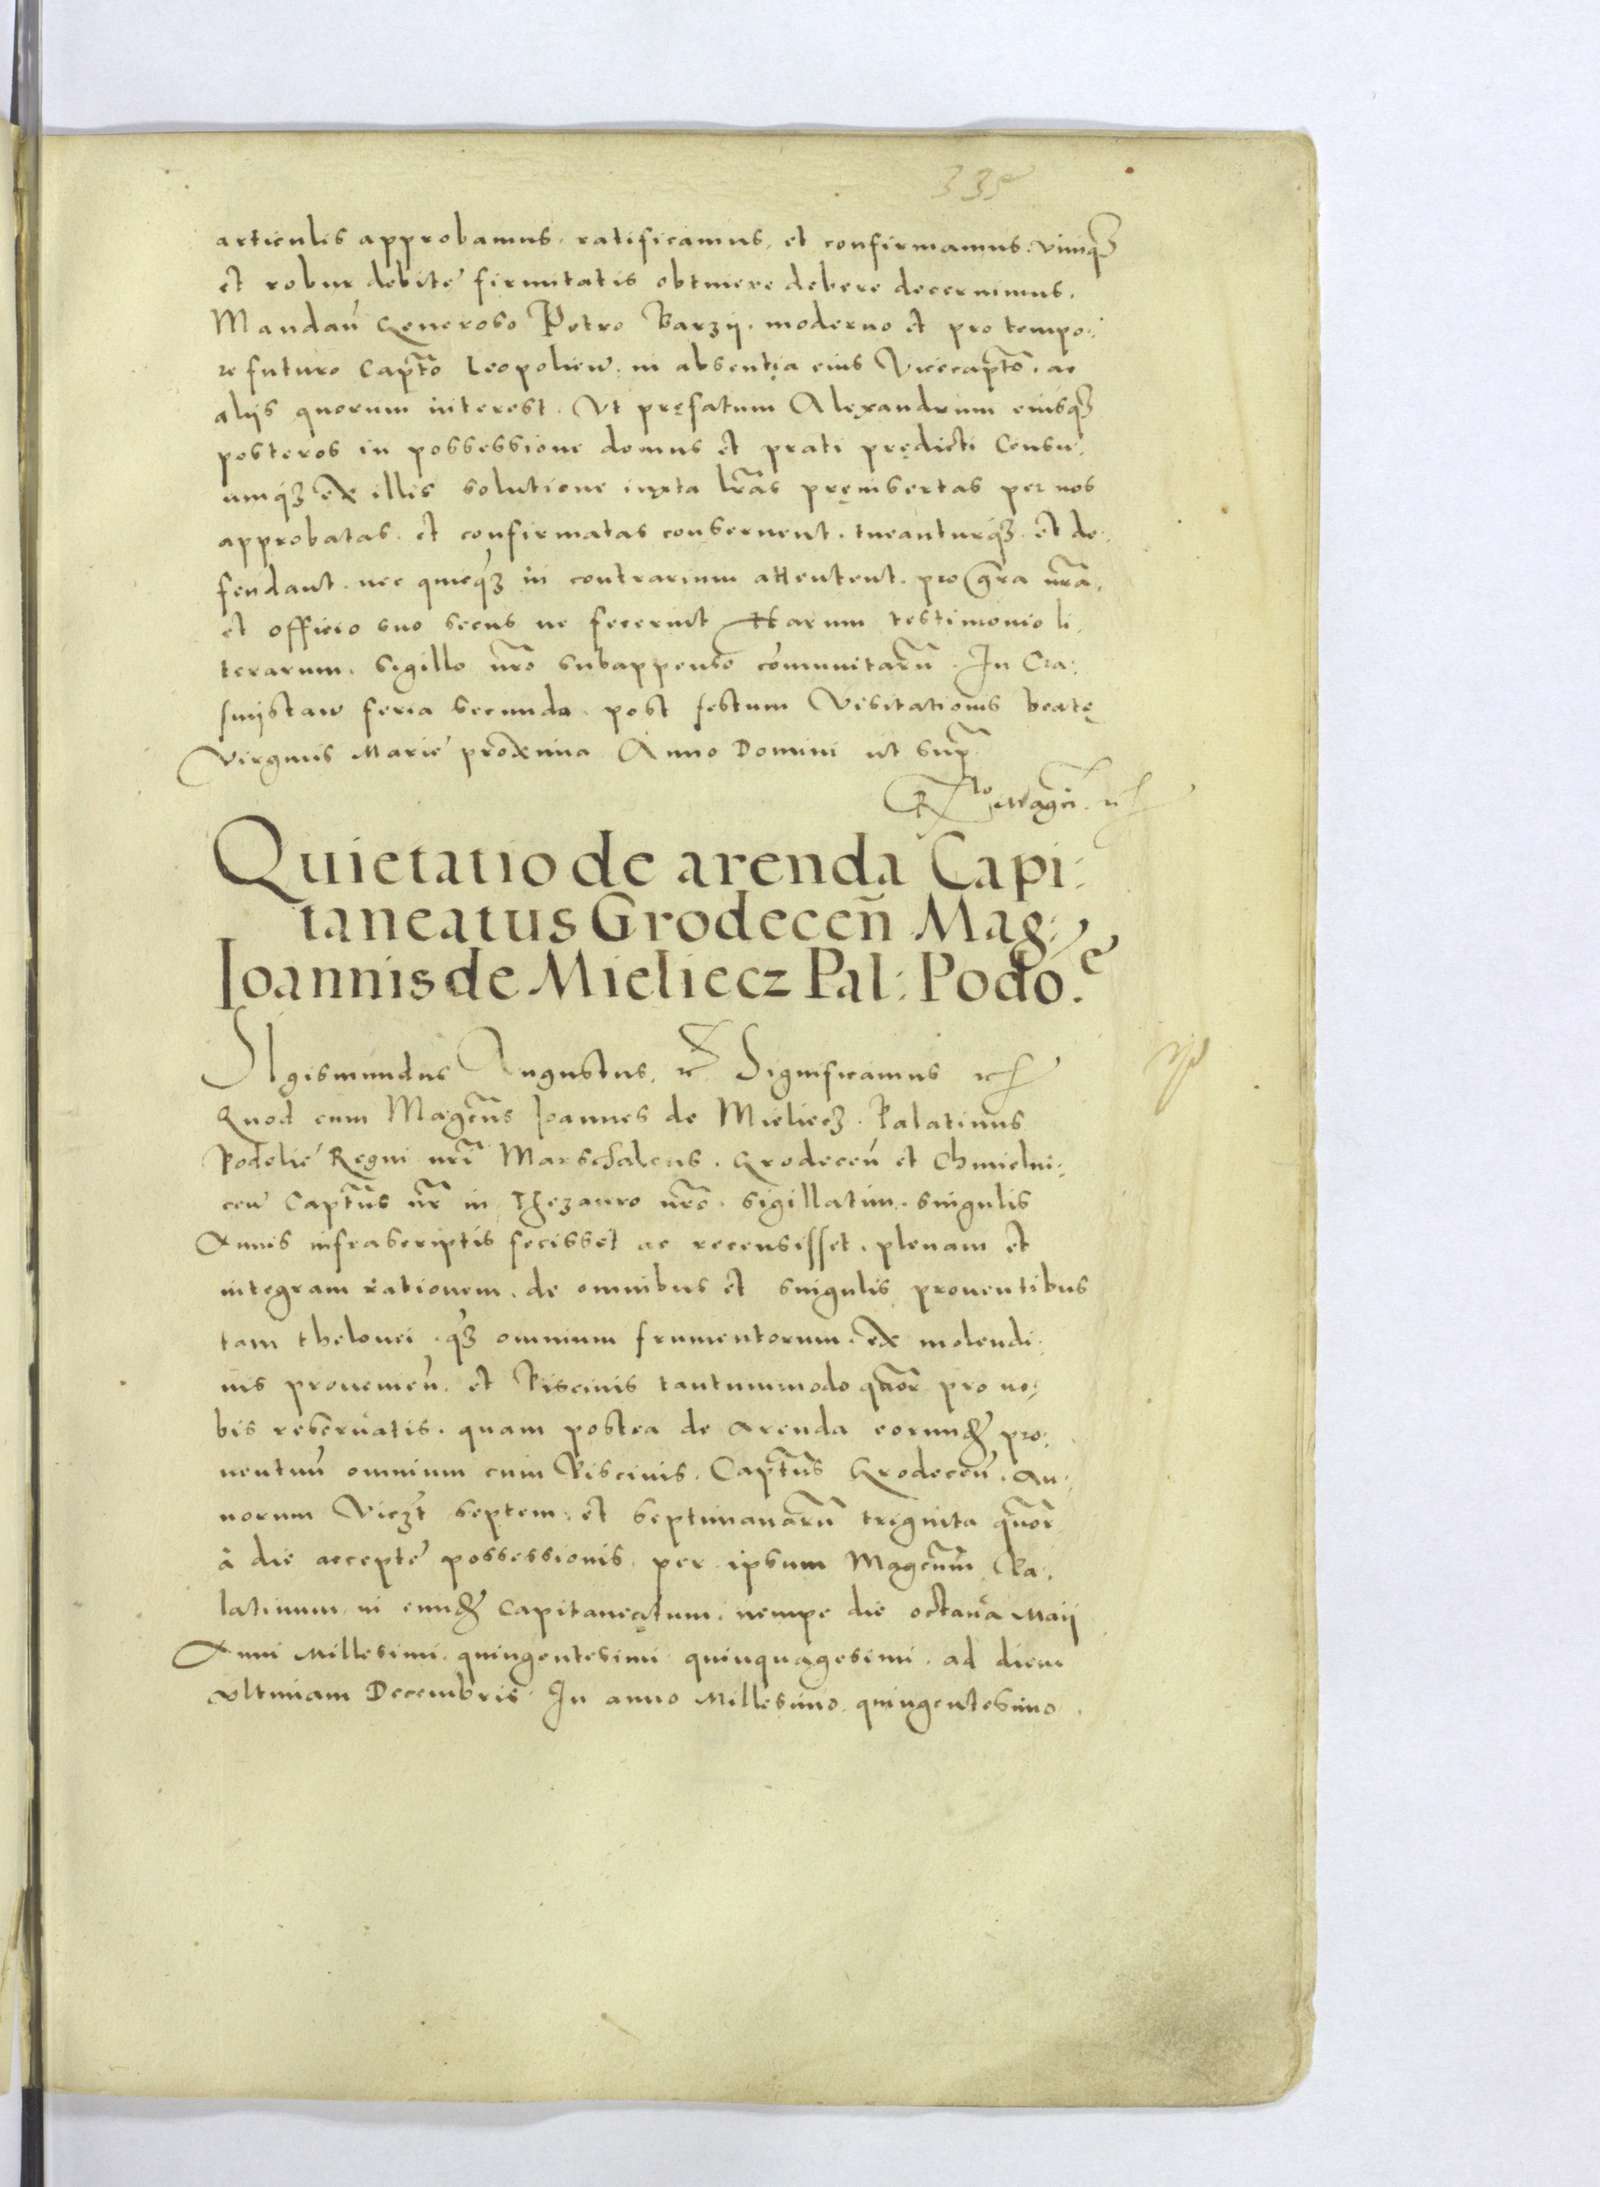 335
articulis approbamus, ratificamus, et confirmamus. vimqȝ
et robur debite firmitatis obtinere debere decernimus.
Mandañ Generoso Petro Barzij, moderno et pro tempo:
re futuro Captō Leopolieñ. in absentia eius Vicecaptō, ac
alijs quorum interest. Vt pręfatum Alexandrum eiusqȝ
posteros in possessione domus et prati prędicti Censu
umqȝ ex illis solutione iuxta lr̄as pręinsertas per nos
approbatas et confirmatas conseruent, tueanturqȝ et de:
fendant, nec quicqȝ in contrarium attentent, pro gr̄a nr̄a,
et officio suo secus ne fecerint Harum testimonio li
terarum, sigillo nr̄o subappenso cōmunitarū. In Cra:
snijstaw feria secunda post festum Visitationis beatę
Virginis Marie proxima Anno Domini ut sup̄
Mag̃ci
Quietatio de arenda Capi:
taneatus Grodeceñ Mag:
Joannis de Mieliecz Pal: Podo.e
Sigismundus Augustus. etc Significamus etc
Quod cum Magcūs Joannes de Mieliecȝ Palatinus
Podolie Regni nr̄i Marschalcus, Grodeceñ et Chmielni:
ceñ Captūs nr̄ in Thezauro nr̄o sigillatim singulis
Annis infrascriptis fecisset ac recensisset, plenam et
integram rationem, de omnibus et singulis prouentibus
tam thelonei qȝ omnium frumentorum, ex molendi:
nis proueneñ. et Piscinis tantummodo quōr pro no:
bis reseruatis, quam postea de Arenda eorundē pro:
uentuū omnium cum Piscinis, Captūs Grodeceñ. An:
norum Viegt septem, et septimanarū triginta quōr
à die accepte possessionis per ipsum Magcūm Pa:
latinum in eundē Capitaneatum, nempe die octaua Maij
Anni Millesimi quingentesimi quinquagesimi, ad diem
vltimam Decembris In anno Millesimo quingentesimo